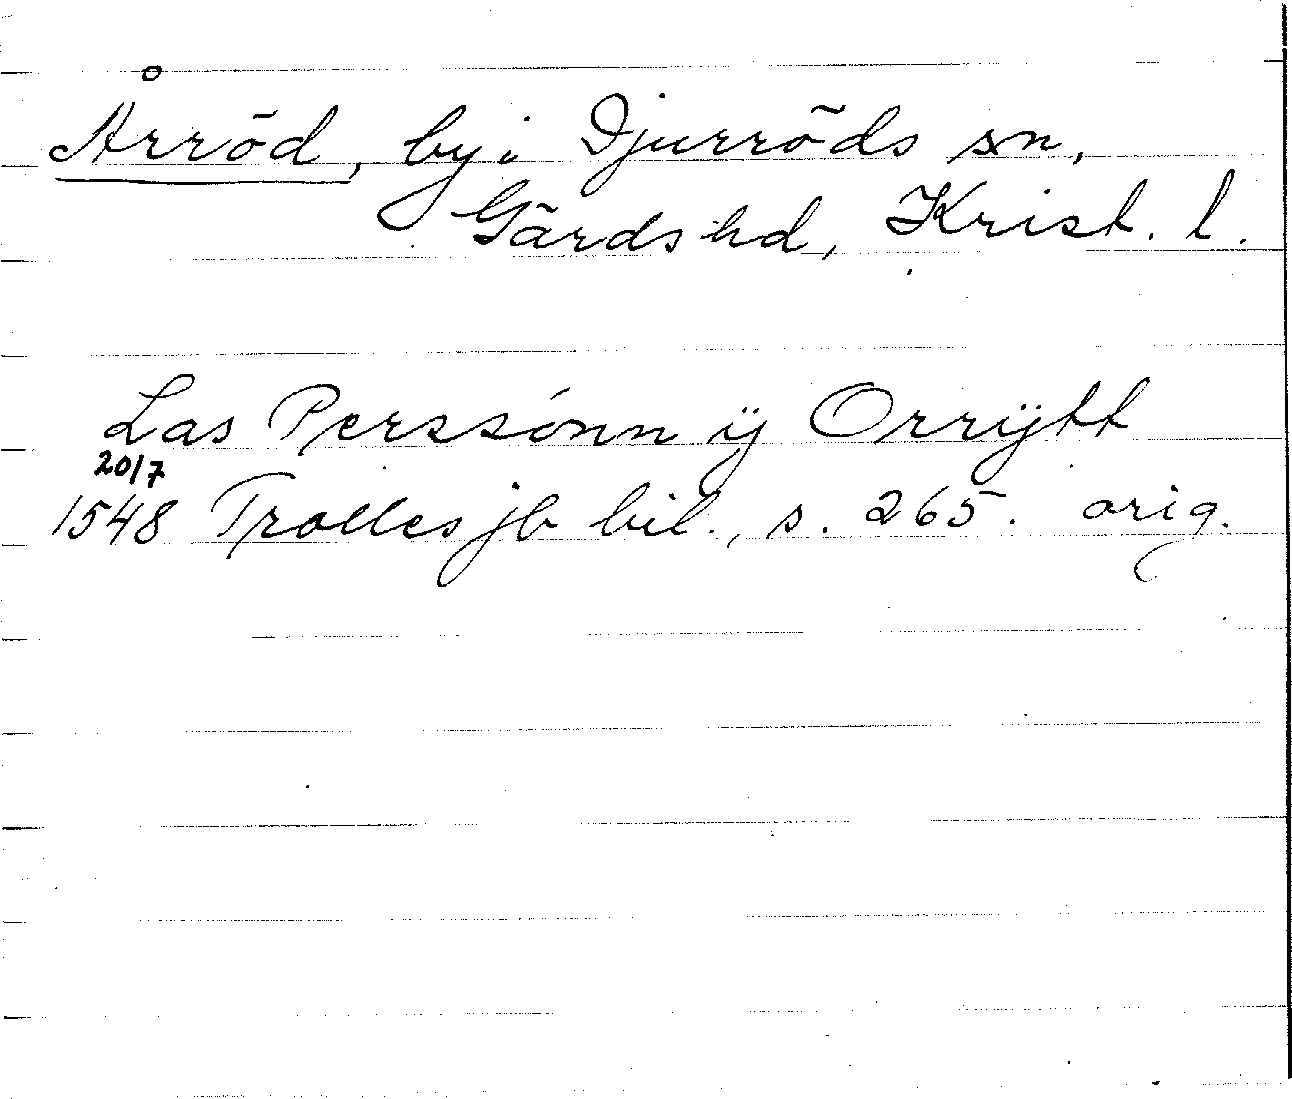 Årröd, by i Djurröds sn,
Gärds hd, Krist. l.
Las Perssónn ÿ Orrÿtt
20/7
1548 Trolles jb bil., s. 265. orig.